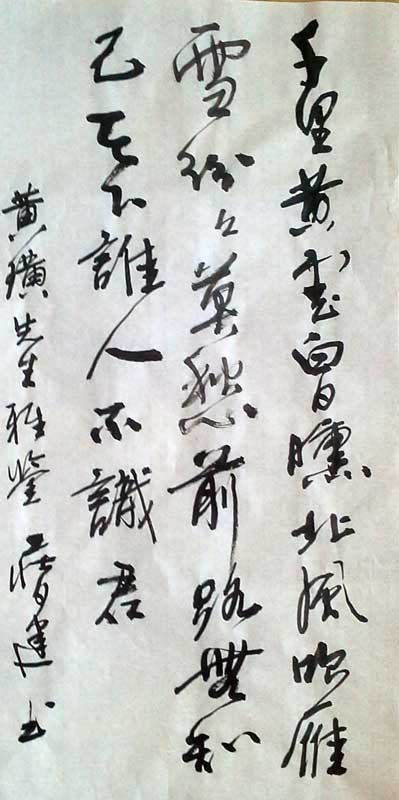 千里黄雲白日曛北風吹雁
雪紛々莫愁前路無知
己天下誰人不識君
黄璜先生雅鑒 建书